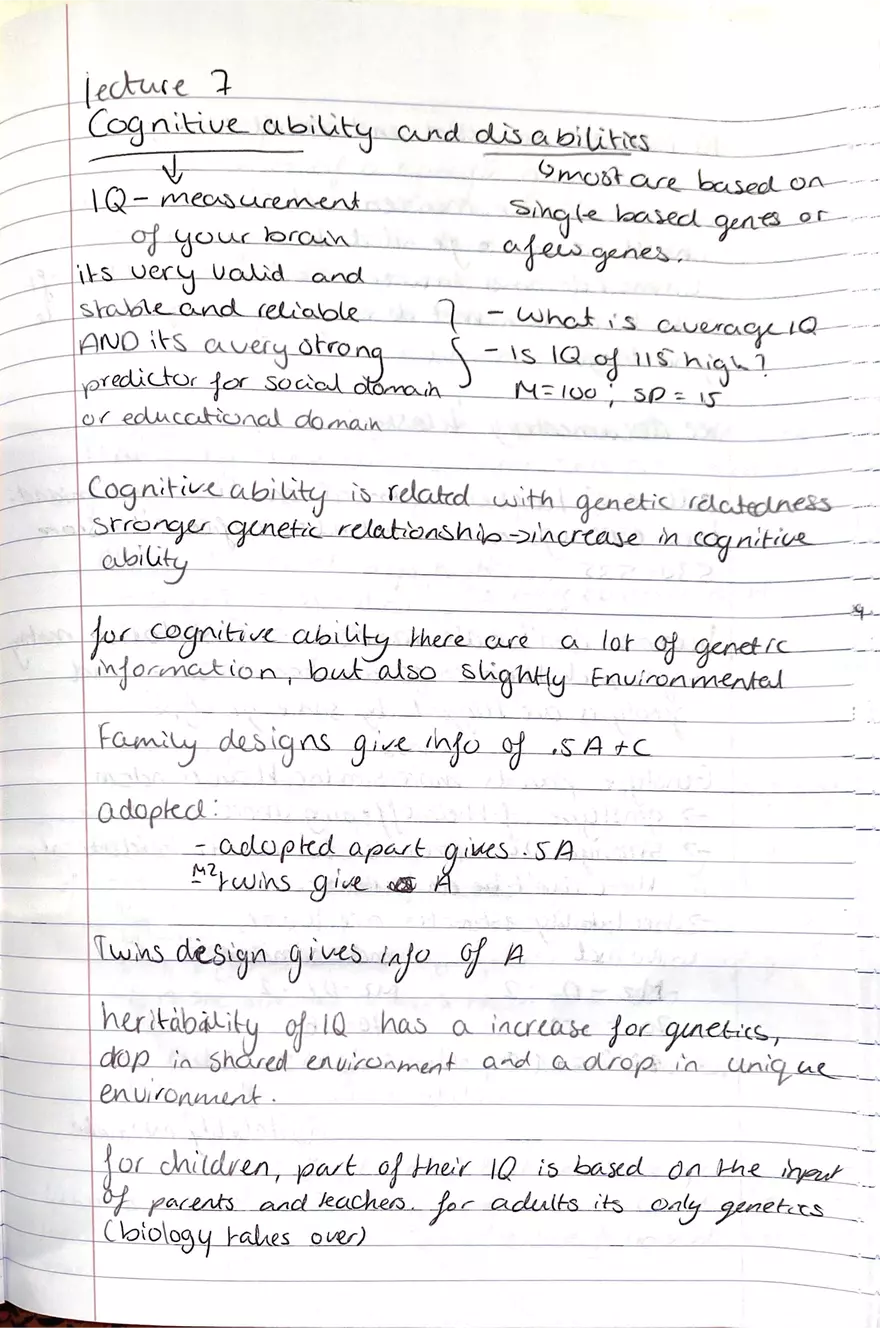 lecture 7
Cognitive ability and disabilities
↓
IQ - measurement
of your brain
its very valid and
stable and reliable
AND its a very strong
predictor for social domain
or educational domain
↳ most are based on
single based genes or
a few genes.
- what is average IQ
- is IQ of 115 high?
M=100; SD = 15
Cognitive ability is related with genetic relatedness
stronger genetic relationship → increase in cognitive
ability
for cognitive ability there are a lot of genetic
information, but also slightly Environmental
Family designs give info of .5 A + C
adopted:
- adopted apart gives .5A
- MZ twins give A
Twins design gives info of A
heritability of IQ has a increase for genetics,
drop in shared environment and a drop in unique
environment.
for children, part of their IQ is based on the input
of parents and teachers. for adults its only genetics
(biology takes over)